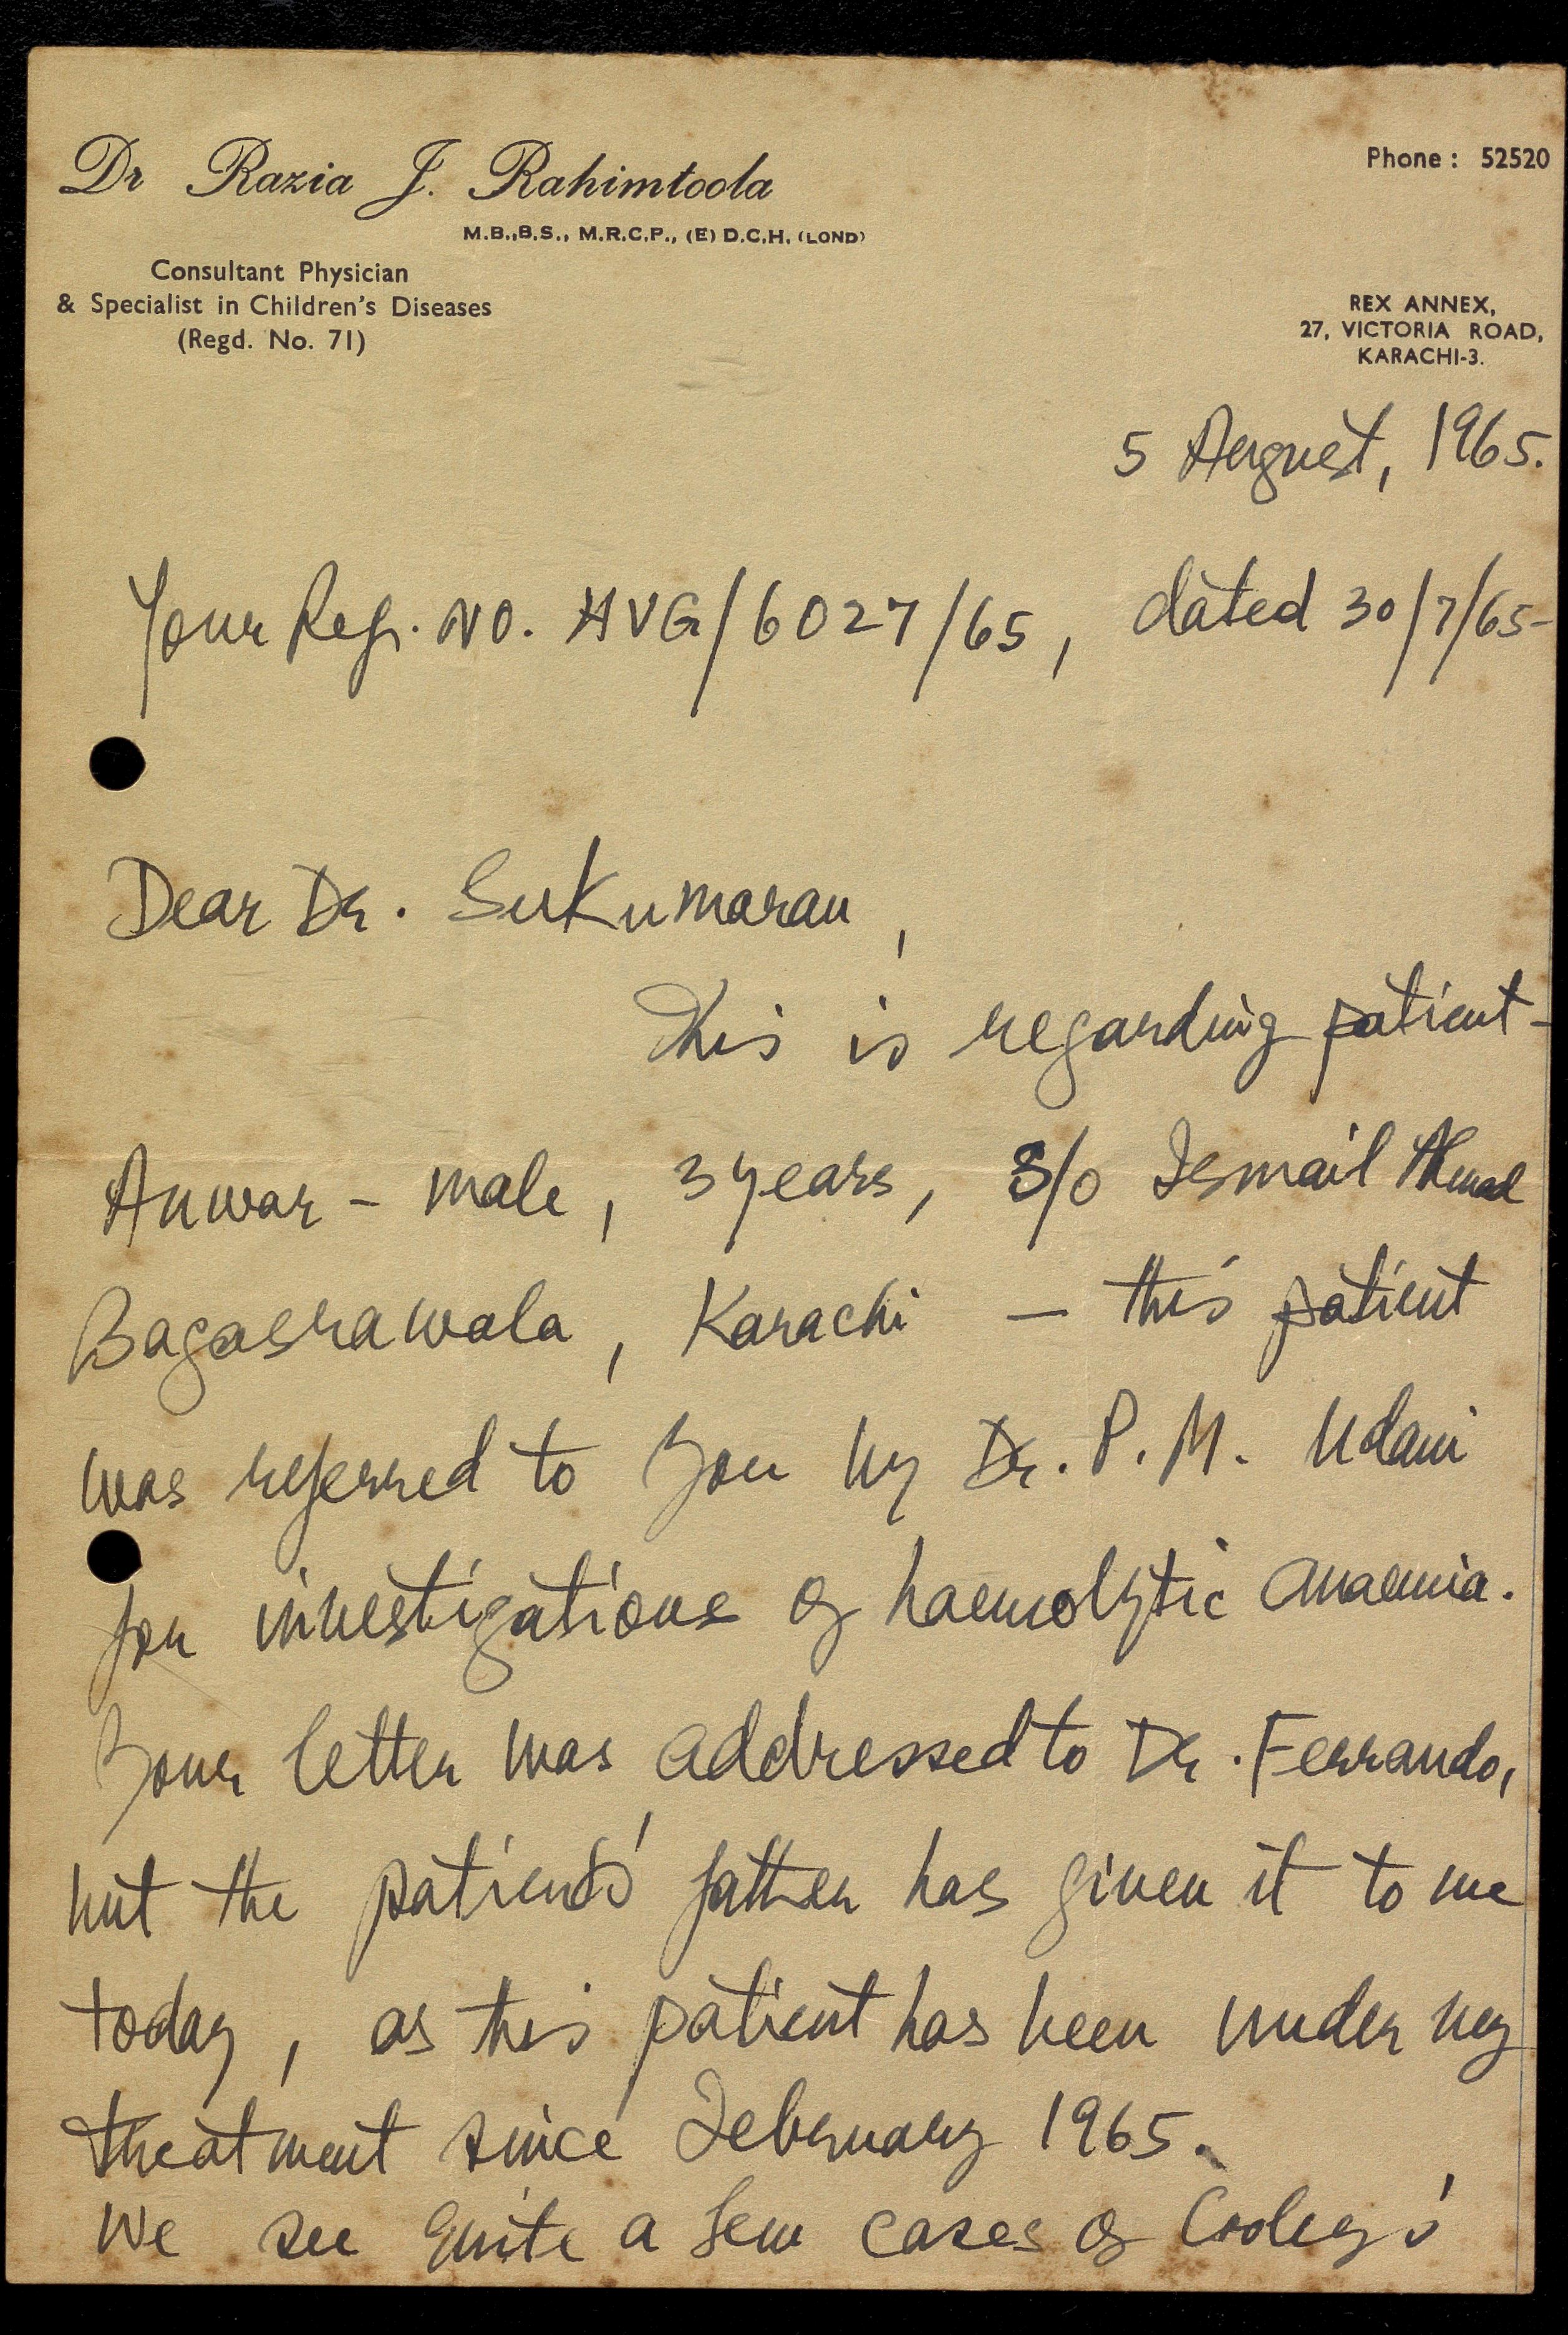 Dr Razia J. Rahimtoola
Phone : 52520
M.B.,B.S., M.R.C.P., (E) D.C.H. (LOND)
Consultant Physician
& Specialist in Children's Diseases
(Regd. No. 71)
REX ANNEX,
27, VICTORIA ROAD,
KARACHI-3.
5 August, 1965.
Your Ref. NO. AVG/6027/65, dated 30/7/65-
Dear Dr. Sukumaran,
This is regarding patient-
Anwar - male, 3 years, S/o Ismail Ahmed
Bagasrawala, Karachi - this patient
was referred to you by Dr. P. M. Udani
for investigations of haemolytic anaemia.
Your letter was addressed to Dr. Ferrando,
but the patients' father has given it to me
today, as this patient has been under my
treatment since February 1965.
We see quite a few cases of Cooley's